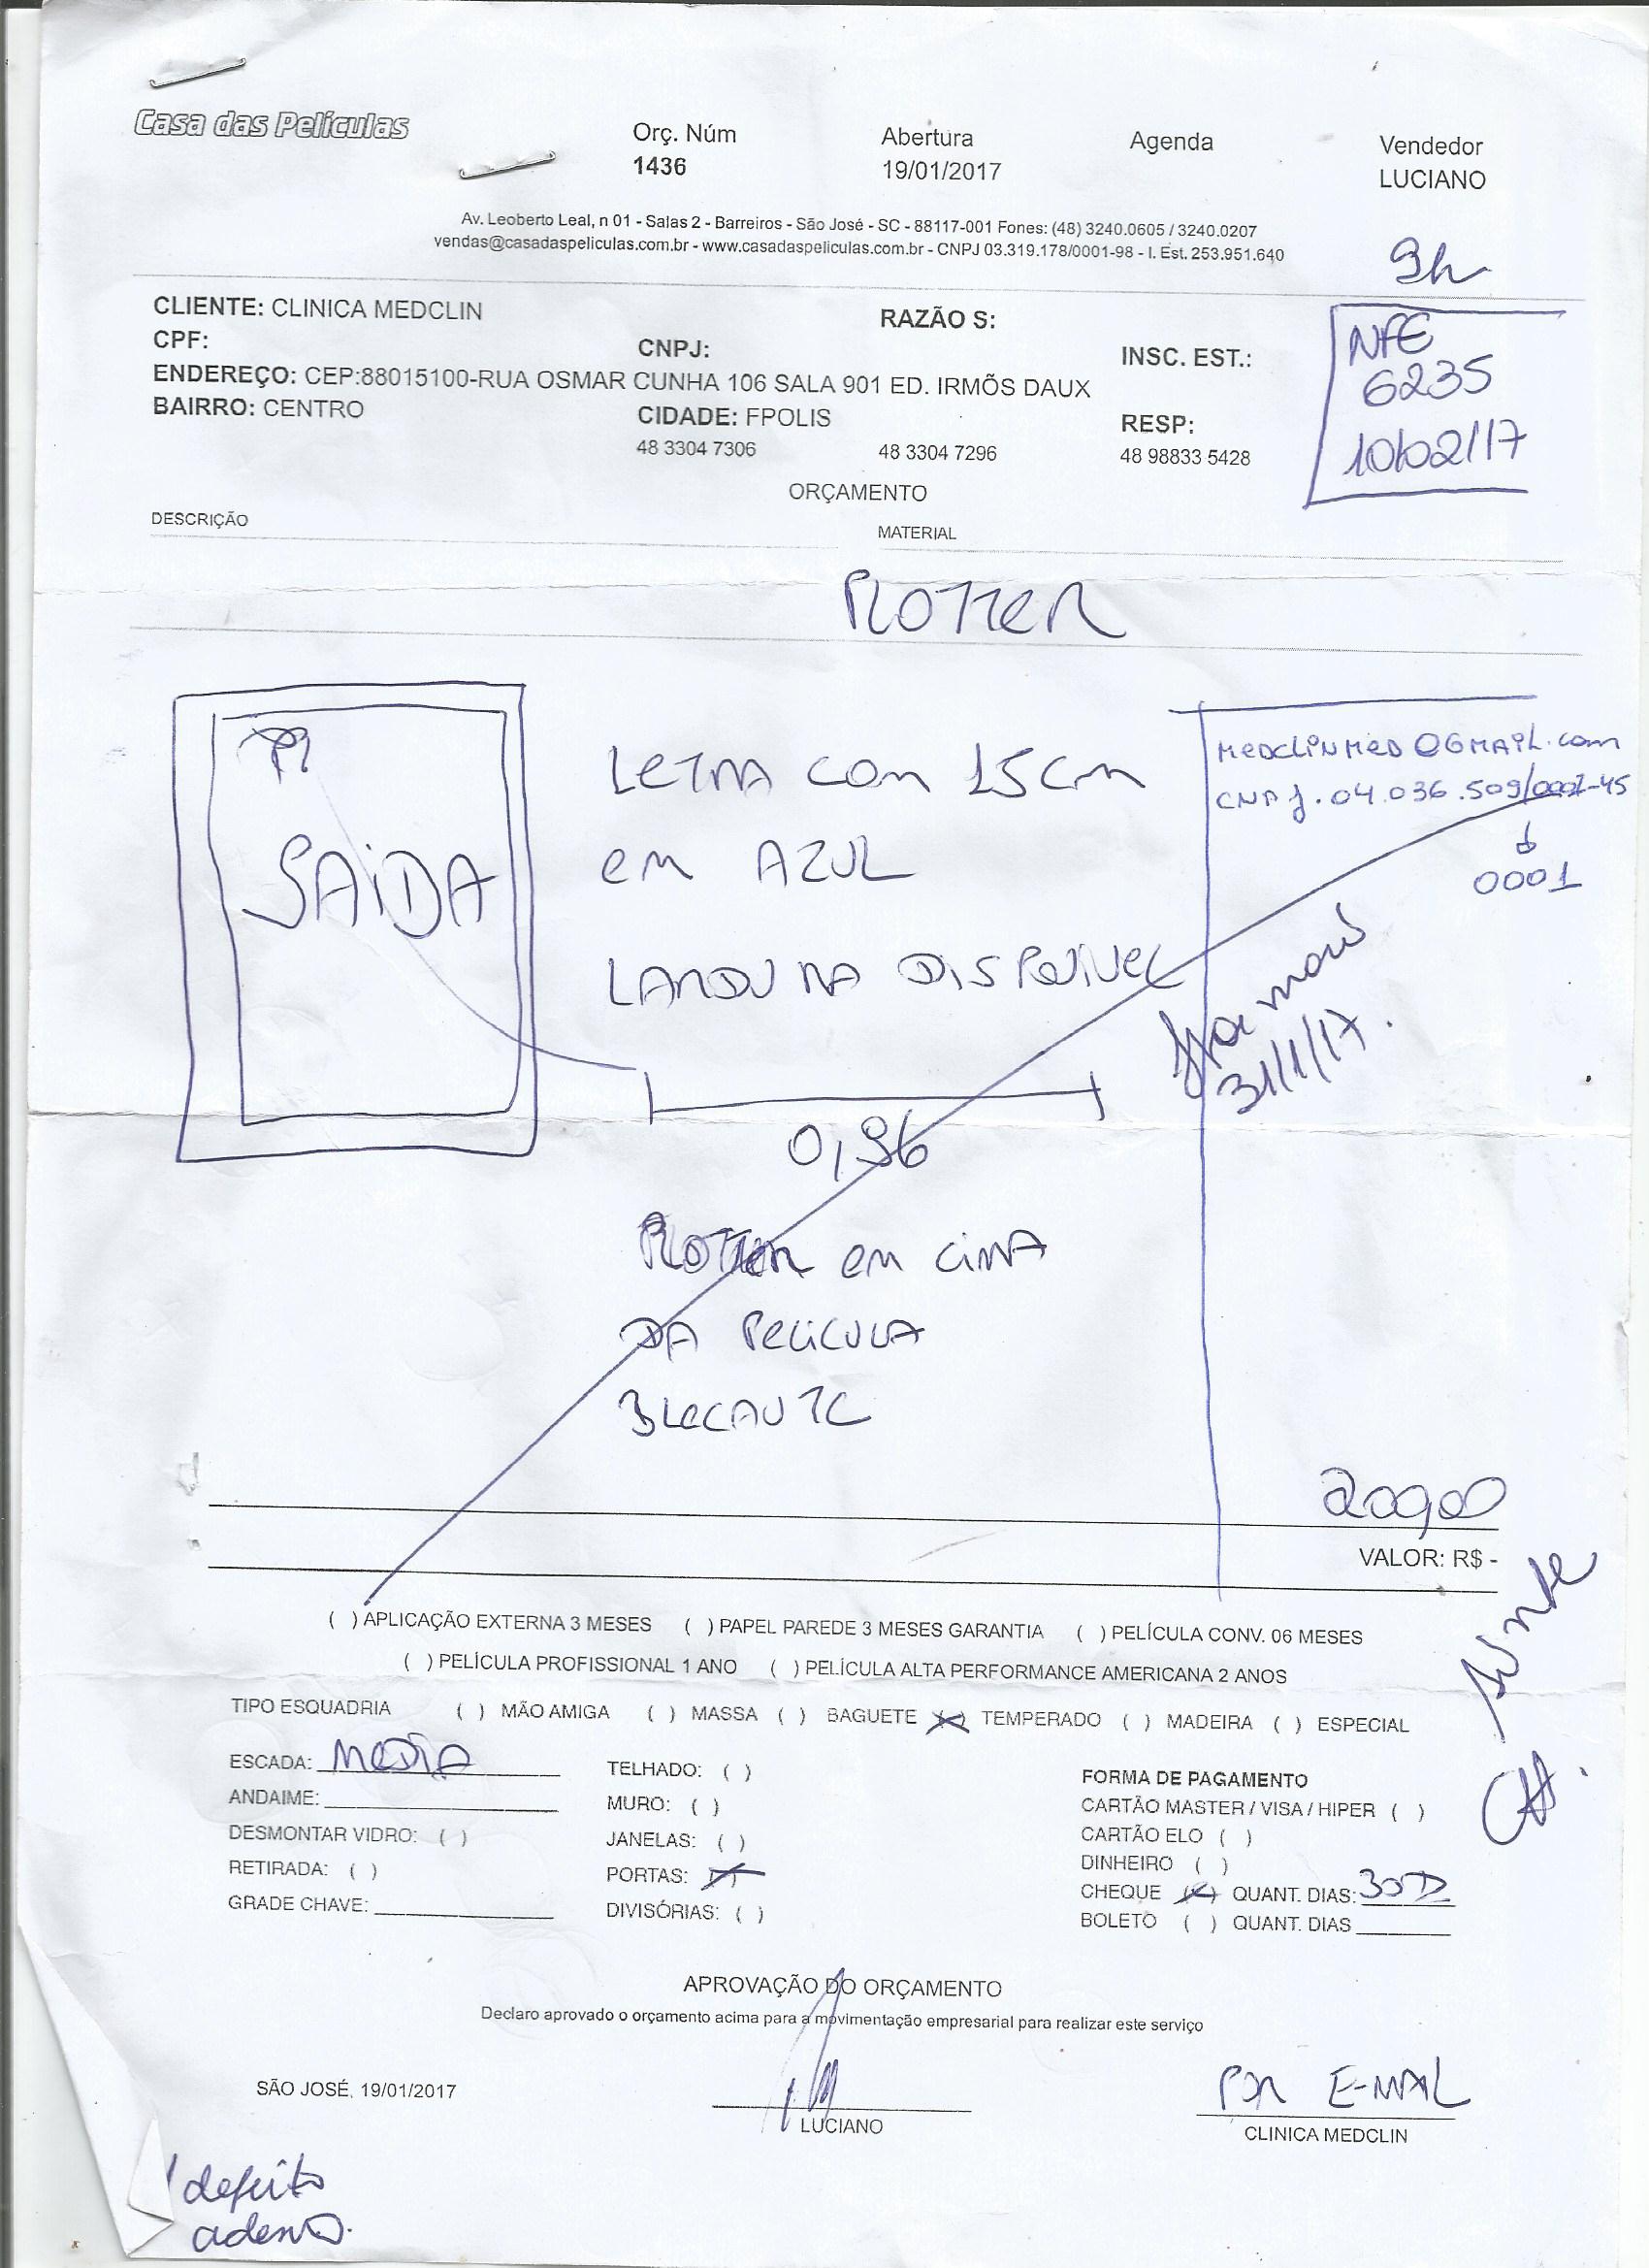 Casa das Películas
Orç. Núm
1436
Abertura
19/01/2017
Agenda
Vendedor
LUCIANO
Av. Leoberto Leal, n 01 - Salas 2 - Barreiros - São José - SC - 88117-001 Fones: (48) 3240.0605 / 3240.0207
vendas@casadaspeliculas.com.br - www.casadaspeliculas.com.br - CNPJ 03.319.178/0001-98 - I. Est. 253.951.640
9h
CLIENTE: CLINICA MEDCLIN
RAZÃO S:
CPF:
CNPJ:
INSC. EST.:
ENDEREÇO: CEP:88015100-RUA OSMAR CUNHA 106 SALA 901 ED. IRMÕS DAUX
BAIRRO: CENTRO
CIDADE: FPOLIS
RESP:
48 3304 7306
48 3304 7296
48 98833 5428
NFE
6235
10/02/17
ORÇAMENTO
DESCRIÇÃO
MATERIAL
PLOTTER
SAIDA
LETRA COM 15cm
EM AZUL
LARGURA DISPONIVEL
MEDCLINMED@GMAIL.COM
CNPJ.04.036.509/0001-45
0001
31/1/17.
0,96
PLOTTER EM CIMA
DA PELICULA
BLECAUTE
200,00
VALOR: R$ -
( ) APLICAÇÃO EXTERNA 3 MESES ( ) PAPEL PAREDE 3 MESES GARANTIA ( ) PELÍCULA CONV. 06 MESES
( ) PELÍCULA PROFISSIONAL 1 ANO ( ) PELÍCULA ALTA PERFORMANCE AMERICANA 2 ANOS
TIPO ESQUADRIA ( ) MÃO AMIGA ( ) MASSA ( ) BAGUETE (X) TEMPERADO ( ) MADEIRA ( ) ESPECIAL
ESCADA: MEDIA
ANDAIME:
DESMONTAR VIDRO: ( )
RETIRADA: ( )
GRADE CHAVE:
TELHADO: ( )
MURO: ( )
JANELAS: ( )
PORTAS: (X)
DIVISÓRIAS: ( )
FORMA DE PAGAMENTO
CARTÃO MASTER / VISA / HIPER ( )
CARTÃO ELO ( )
DINHEIRO ( )
CHEQUE (X) QUANT. DIAS: 30D
BOLETO ( ) QUANT. DIAS
APROVAÇÃO DO ORÇAMENTO
Declaro aprovado o orçamento acima para a movimentação empresarial para realizar este serviço
SÃO JOSÉ, 19/01/2017
LUCIANO
POR E-MAIL
CLINICA MEDCLIN
defeito